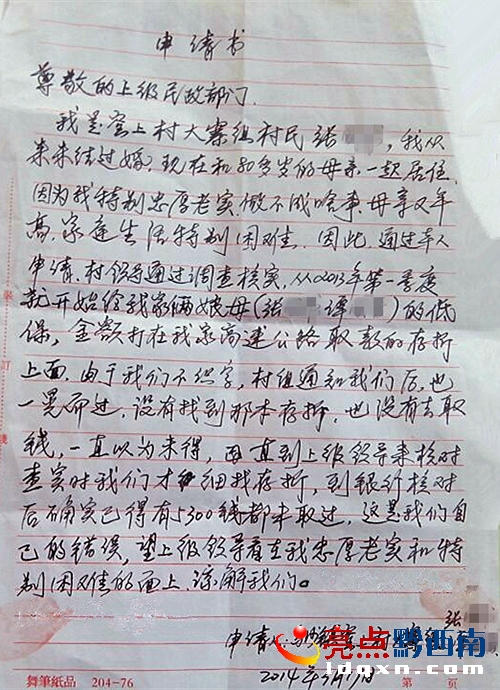 申请书
尊敬的上级民政部门.
我是窑上村大寨组村民张 ,我从
来未结过婚.现在和80多岁的母亲一起居住.
因为我特别忠厚老实.做不成啥事.母亲又年
高.家庭生活特别困难.因此.通过本人
申请.村领导通过调查核实,从2013年第一季度
就开始给我家俩娘母(张 谭 )的低
保,金额打在我家高速公路取款的存折
上面.由于我们不识字,村组通知我们后.也
一晃而过.没有找到那本存折.也没有去取
钱,一直以为未得,而直到上级领导来核对
查实时我们才细找存折,到银行核对
后确实已得有5300钱都未取过,这是我们自
己的错误,望上级领导看在我忠厚老实和特
别困难的面上.谅解我们。
张
申请人
亮点黔西南
ldqxn.com
2014年
舞笔纸品 204-76 第 页
装 订 线